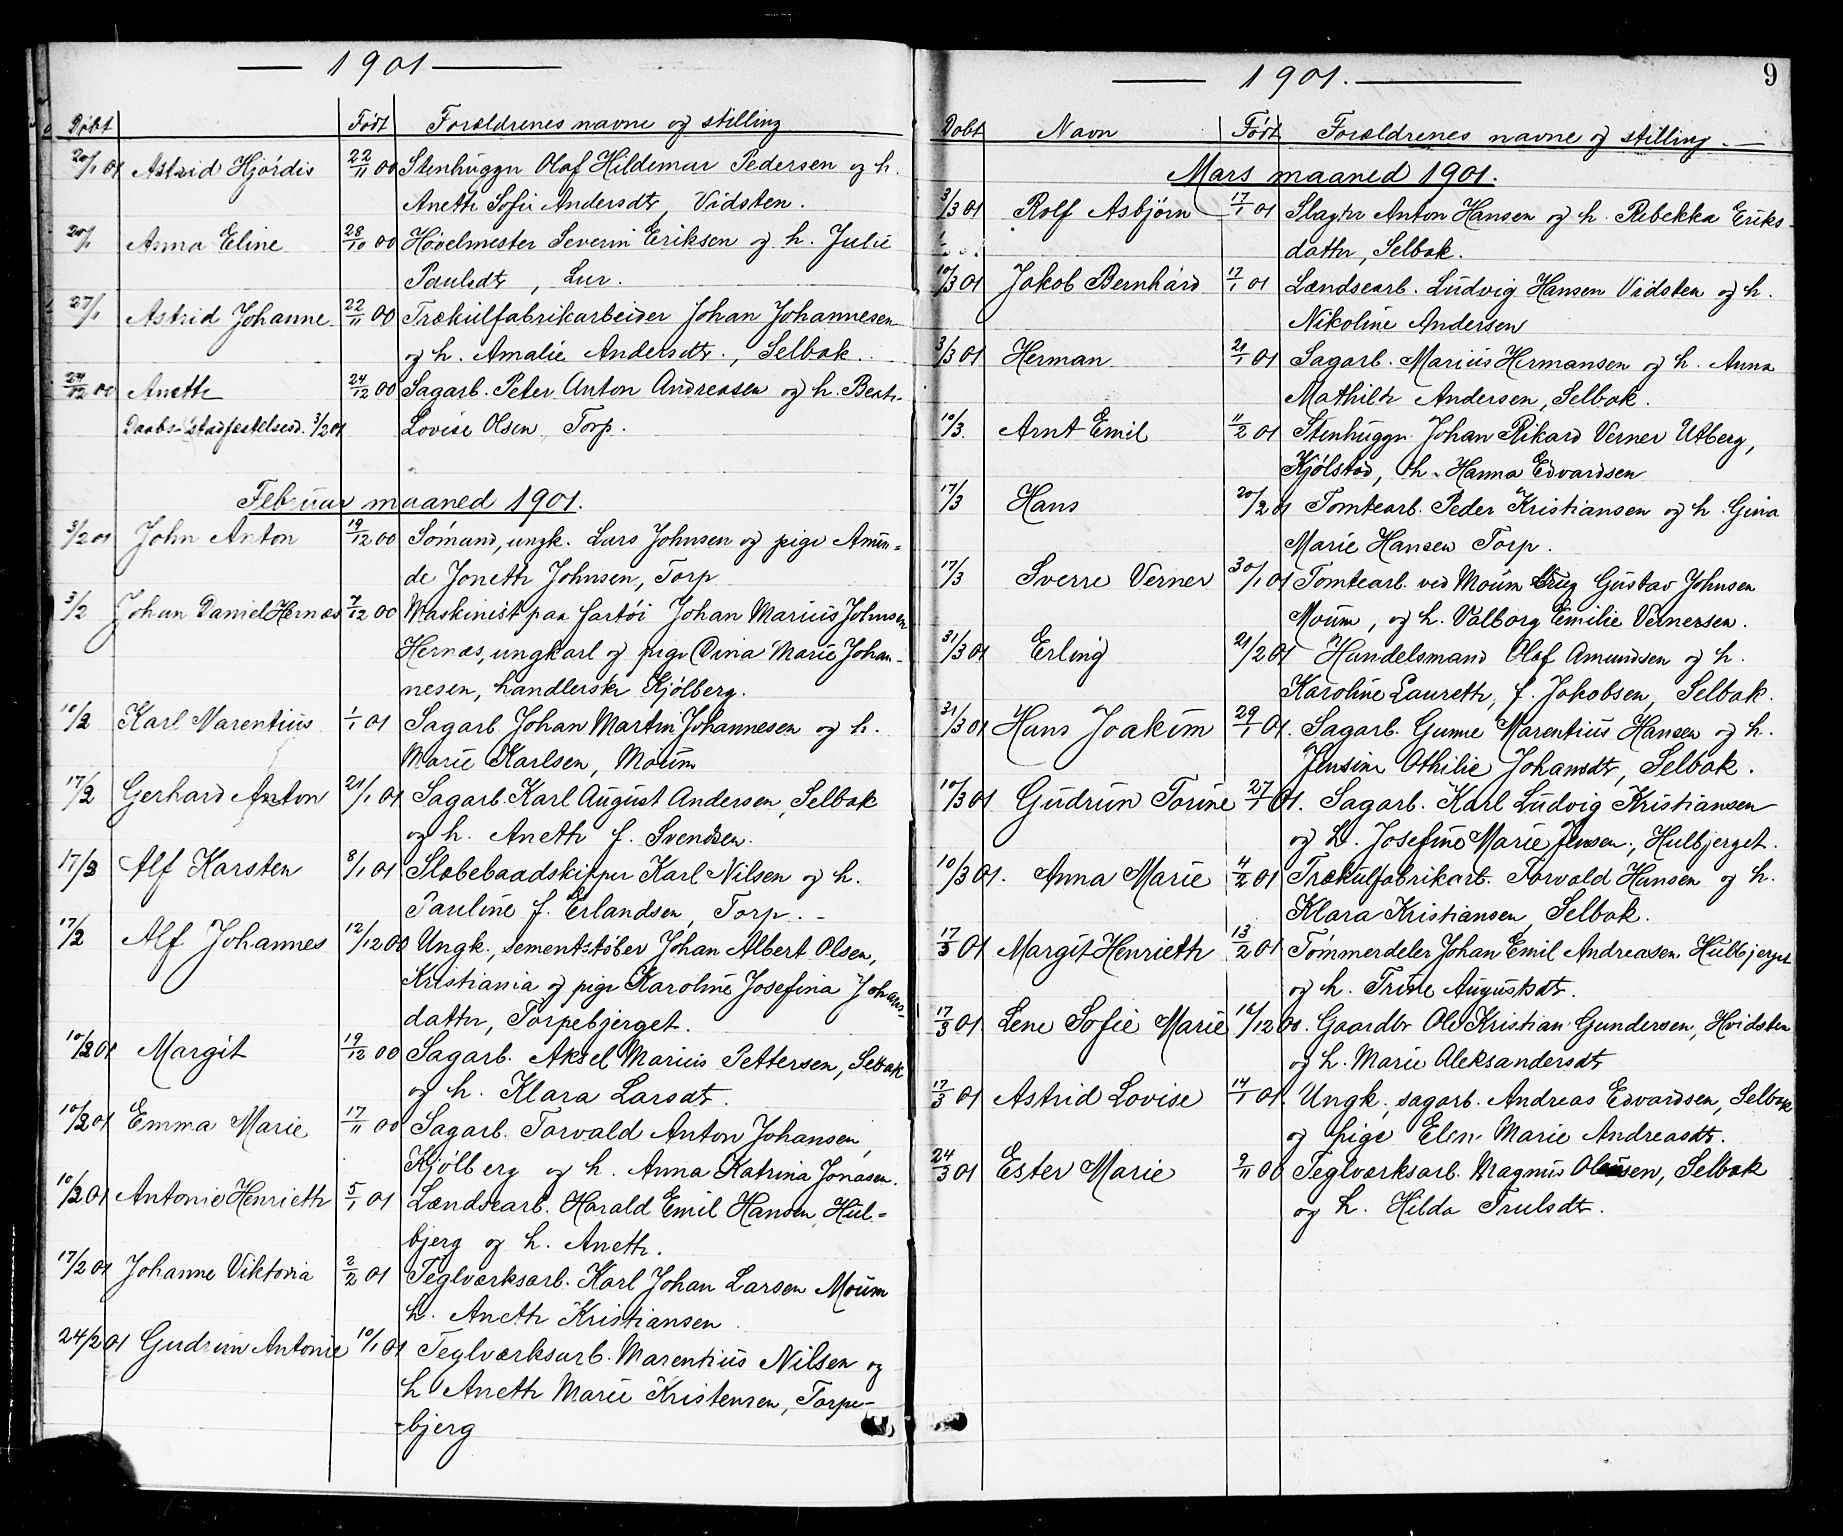 — 1901 —
Døbt Født Forældrenes navne og stilling
20/1 01 Astrid Hjørdis 22/11 00 Stenhugger Olaf Hildemar Pedersen og h.
Anette Sofie Andersdtr, Vidsten.
20/1 Anna Eline 28/10 00 Høvelmester Severin Eriksen og h. Julie
Paulsdtr, Lur.
27/1 Astrid Johanne 22/11 00 Trækulfabrikarbeider Johan Johannesen
og h. Amalie Andersdtr., Selbak.
24/12 00 Anette 24/12 00 Sagarb. Peter Anton Andreasen og h. Beate
Daabs-stadfæstelsesd. 3/2 01 Lovise Olsen, Torp.
Februar maaned 1901.
3/2 01 John Anton 19/12 00 Sømand, ungk. Lars Johnsen og pige Amun=
de Jonette Johnsen, Torp
3/2 Johan Daniel Hernæs 7/12 00 Maskinist paa fartøi Johan Marius Johnsen
Hernæs, ungkarl og pige Dina Marie Johan-
nesen, handlerske Kjølberg.
10/2 Karl Marentius 1/1 01 Sagarb. Johan Martin Johannesen og h.
Marie Karlsen, Moum
17/2 Gerhard Anton 21/1 01 Sagarb. Karl August Andersen, Selbak
og h. Anette f. Svendsen.
17/3 Alf Karsten 8/1 01 Slæbebaadskipper Karl Nilsen og h.
Pauline f. Erlandsen, Torp. -
17/2 Alf Johannes 12/12 00 Ungk., sementstøber Johan Albert Olsen,
Kristiania og pige Karoline Josefina Johans-
datter, Torpebjerget.
10/2 01 Margit 19/12 00 Sagarb. Aksel Marius Pettersen, Selbak
og h. Klara Larsdtr.
10/2 01 Emma Marie 17/11 00 Sagarb. Torvald Anton Johansen,
Kjølberg og h. Anna Katrina Jonasen.
10/2 01 Antonie Henriette 5/1 01 Lændsearb. Harald Emil Hansen, Hul-
bjerg og h. Anette.
17/2 01 Johanne Viktoria 2/2 01 Teglværksarb. Karl Johan Larsen Moum
h. Anette Kristiansen
24/2 01 Gudrun Antonie 10/1 01 Teglværksarb. Marentius Nilsen og
h Anette Marie Kristensen, Torpe-
-bjerg
— 1901. — 9
Døbt Navn Født Forældrenes navne og stilling. —
Mars maaned 1901.
3/3 01 Rolf Asbjørn 17/1 01 Slagter Anton Hansen og h. Rebekka Eriks-
datter, Selbak.
10/3 01 Jakob Bernhard 17/1 01 Lændsearb. Ludvig Hansen Vidsten og h.
Nikoline Andersen
3/3 01 Herman 21/1 01 Sagarb. Marius Hermansen og h. Anna
Mathilde Andersen, Selbak.
10/3. Arnt Emil 11/2 01 Stenhugger Johan Rikard Verner Utberg,
Kjølstad, h. Hanna Edvardsen
17/3 Hans 20/2 01 Tomtearb. Peder Kristiansen og h. Gina
Marie Hansen Torp.
17/3 Sverre Verner 30/1 01 Tomtearb. ved Moum brug Gustav Johnsen
Moum, og h. Valborg Emilie Vernersen.
31/3 01 Erling 21/2 01 Handelsmand Olaf Amundsen og h.
Karoline Laurette, f. Jakobsen, Selbak.
31/3 01 Hans Joakim 29/1 01. Sagarb. Gunne Marentius Hansen og h.
Jensine Othilie Johansdtr, Selbak.
10/3 01 Gudrun Torine 27/1 01. Sagarb. Karl Ludvig Kristiansen
og h. Josefine Marie Jensen, Hulbjerget.
10/3 01. Anna Marie 4/2 01 Trækulfabrikarb. Torvald Hansen og h.
Klara Kristiansen, Selbak.
17/3 01 Margit Henriette 13/2 01 Tømmerdeler Johan Emil Andreasen Hulbjerget
og h. Trine Augustsdtr.
17/3 01 Lene Sofie Marie 16/12 00. Gaardbr Ole Kristian Gundersen, Hvidsten
og h. Marie Aleksandersdtr
17/3 01 Astrid Lovise 14/1 01. Ungk., sagarb. Andreas Edvardsen, Selbak
og pige Elen Marie Andreasdtr.
24/3 01 Ester Marie 9/11 00 Teglværksarb. Magnus Olausen, Selbak
og h. Hilda Trulsdtr.